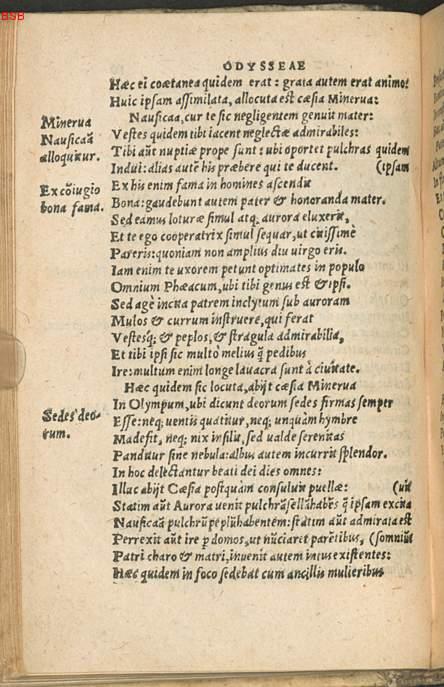 BSB
ODYSSEAE
Hæc ei coætanea quidem erat: grata autem erat animo:
Huic ipsam assimilata, allocuta est cæsia Minerua:
Nausicaa, cur te sic negligentem genuit mater:
Minerua
Vestes quidem tibi iacent neglectæ admirabiles:
Nausicaã
Tibi aũt nuptiæ prope sunt: ubi oportet pulchras quidem
alloquitur.
Indui: alias autẽ his præbere qui te ducent. (ipsam
Ex his enim fama in homines ascendit
Ex cõiugio
Bona: gaudebunt autem pater & honoranda mater.
bona fama.
Sed eamus loturæ simul atq; aurora eluxerit,
Et te ego cooperatrix simul sequar, ut citissimè
Pareris: quoniam non amplius diu uirgo eris.
Iam enim te uxorem petunt optimates in populo
Omnium Phæacum, ubi tibi genus est & ipsi.
Sed agè incita patrem inclytum sub auroram
Mulos & currum instruere, qui ferat
Vestesq; & peplos, & stragula admirabilia,
Et tibi ipsi sic multò melius q̃ pedibus
Ire: multum enim longe lauacra sunt à ciuitate.
Hæc quidem sic locuta, abijt cæsia Minerua
In Olympum, ubi dicunt deorum sedes firmas semper
Sedes deo-
Esse: neq; uentis quatitur, neq; unquàm hymbre
rum.
Madefit, neq; nix insilit, sed ualde serenitas
Panditur sine nebula: albus autem incurrit splendor.
In hoc delectantur beati dei dies omnes:
Illac abijt Cæsia postquàm consuluit puellæ: (uit
Statim aũt Aurora uenit pulchrũ sellã habẽs q̃ ipsam excita
Nausicaã pulchrũ peplũ habentem: statim aũt admirata est
Perrexit aũt ire p domos, ut nũciaret parẽtibus, (somniũ
Patri charo & matri, inuenit autem intus existentes:
Hæc quidem in foco sedebat cum ancillis mulieribus